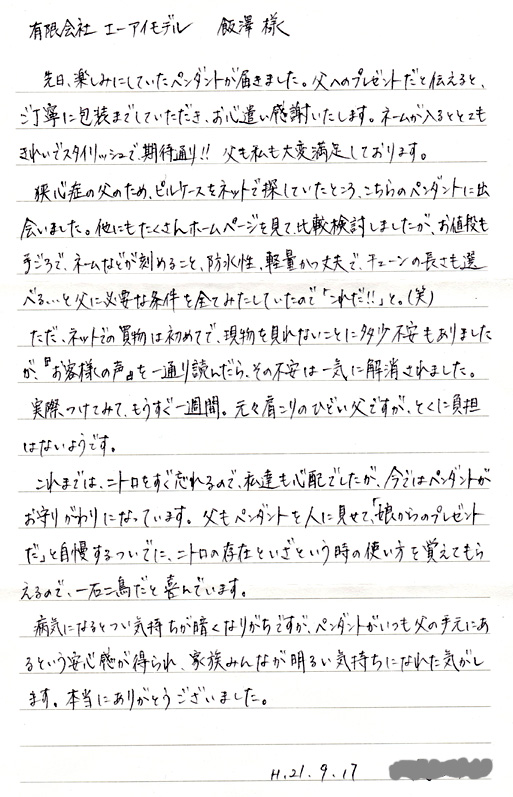 有限会社 エーアイモデル 飯澤 様
先日、楽しみにしていたペンダントが届きました。父へのプレゼントだと伝えると、
ご丁寧に包装までしていただき、お心遣い感謝いたします。ネームが入るととても
きれいでスタイリッシュで、期待通り!! 父も私も大変満足しております。
狭心症の父のため、ピルケースをネットで探していたところ、こちらのペンダントに出
会いました。他にもたくさんホームページを見て、比較検討しましたが、お値段も
手ごろで、ネームなどが刻めること、防水性、軽量かつ丈夫で、チェーンの長さも選
べる…と父に必要な条件を全てみたしていたので「これだ!!」と。(笑)
ただ、ネットでの買物は初めてで、現物を見れないことに多少不安もありました
が、『お客様の声』を一通り読んだら、その不安は一気に解消されました。
実際つけてみて、もうすぐ一週間。元々肩こりのひどい父ですが、とくに負担
はないようです。
これまでは、ニトロをすぐ忘れるので、私達も心配でしたが、今ではペンダントが
お守りがわりになっています。父もペンダントを人に見せて、「娘からのプレゼント
だ」と自慢するついでに、ニトロの存在といざという時の使い方を覚えてもら
えるので、一石二鳥だと喜んでいます。
病気になるとつい気持ちが暗くなりがちですが、ペンダントがいつも父の手元にあ
るという安心感が得られ、家族みんなが明るい気持ちになれた気がし
ます。本当にありがとうございました。
H.21.9.17